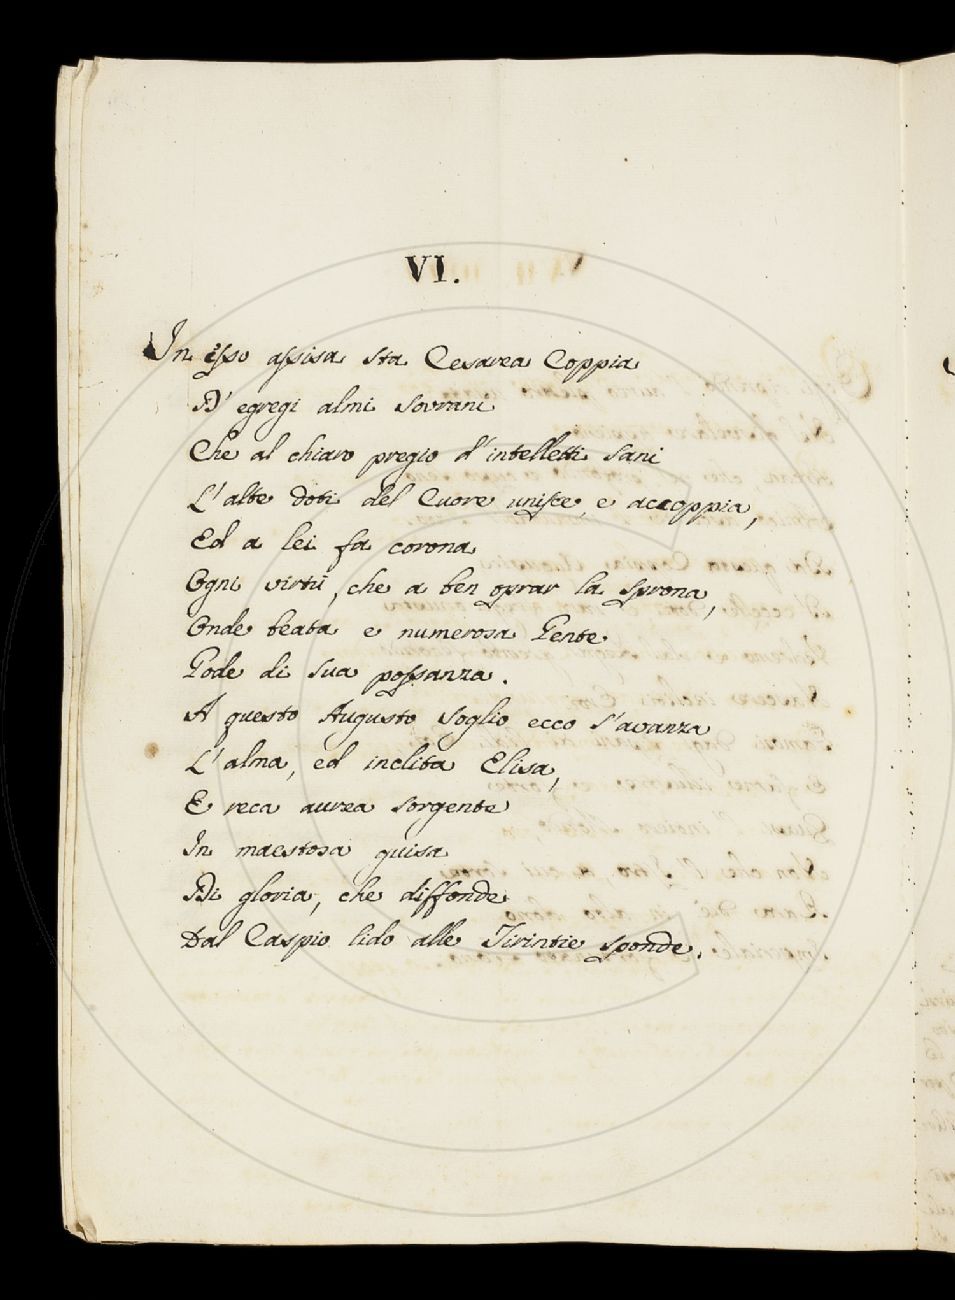 VI.
In esso assisa sta Cesarea Coppia
D' egregi almi Sovrani
Che al chiaro pregio d' intelletti sani
L' alte doti del Cuore unisce, e accoppia,
Ed a lei fa corona
Ogni virtù, che a ben oprar la sprona,
Onde beata e numerosa Gente
Gode di sua possanza.
A questo Augusto Soglio ecco s' avanza
L' alma, ed inclita Elisa,
E reca aurea sorgente
In maestosa guisa
Di gloria, che diffonde
Dal Caspio lido alle Tirintie sponde.